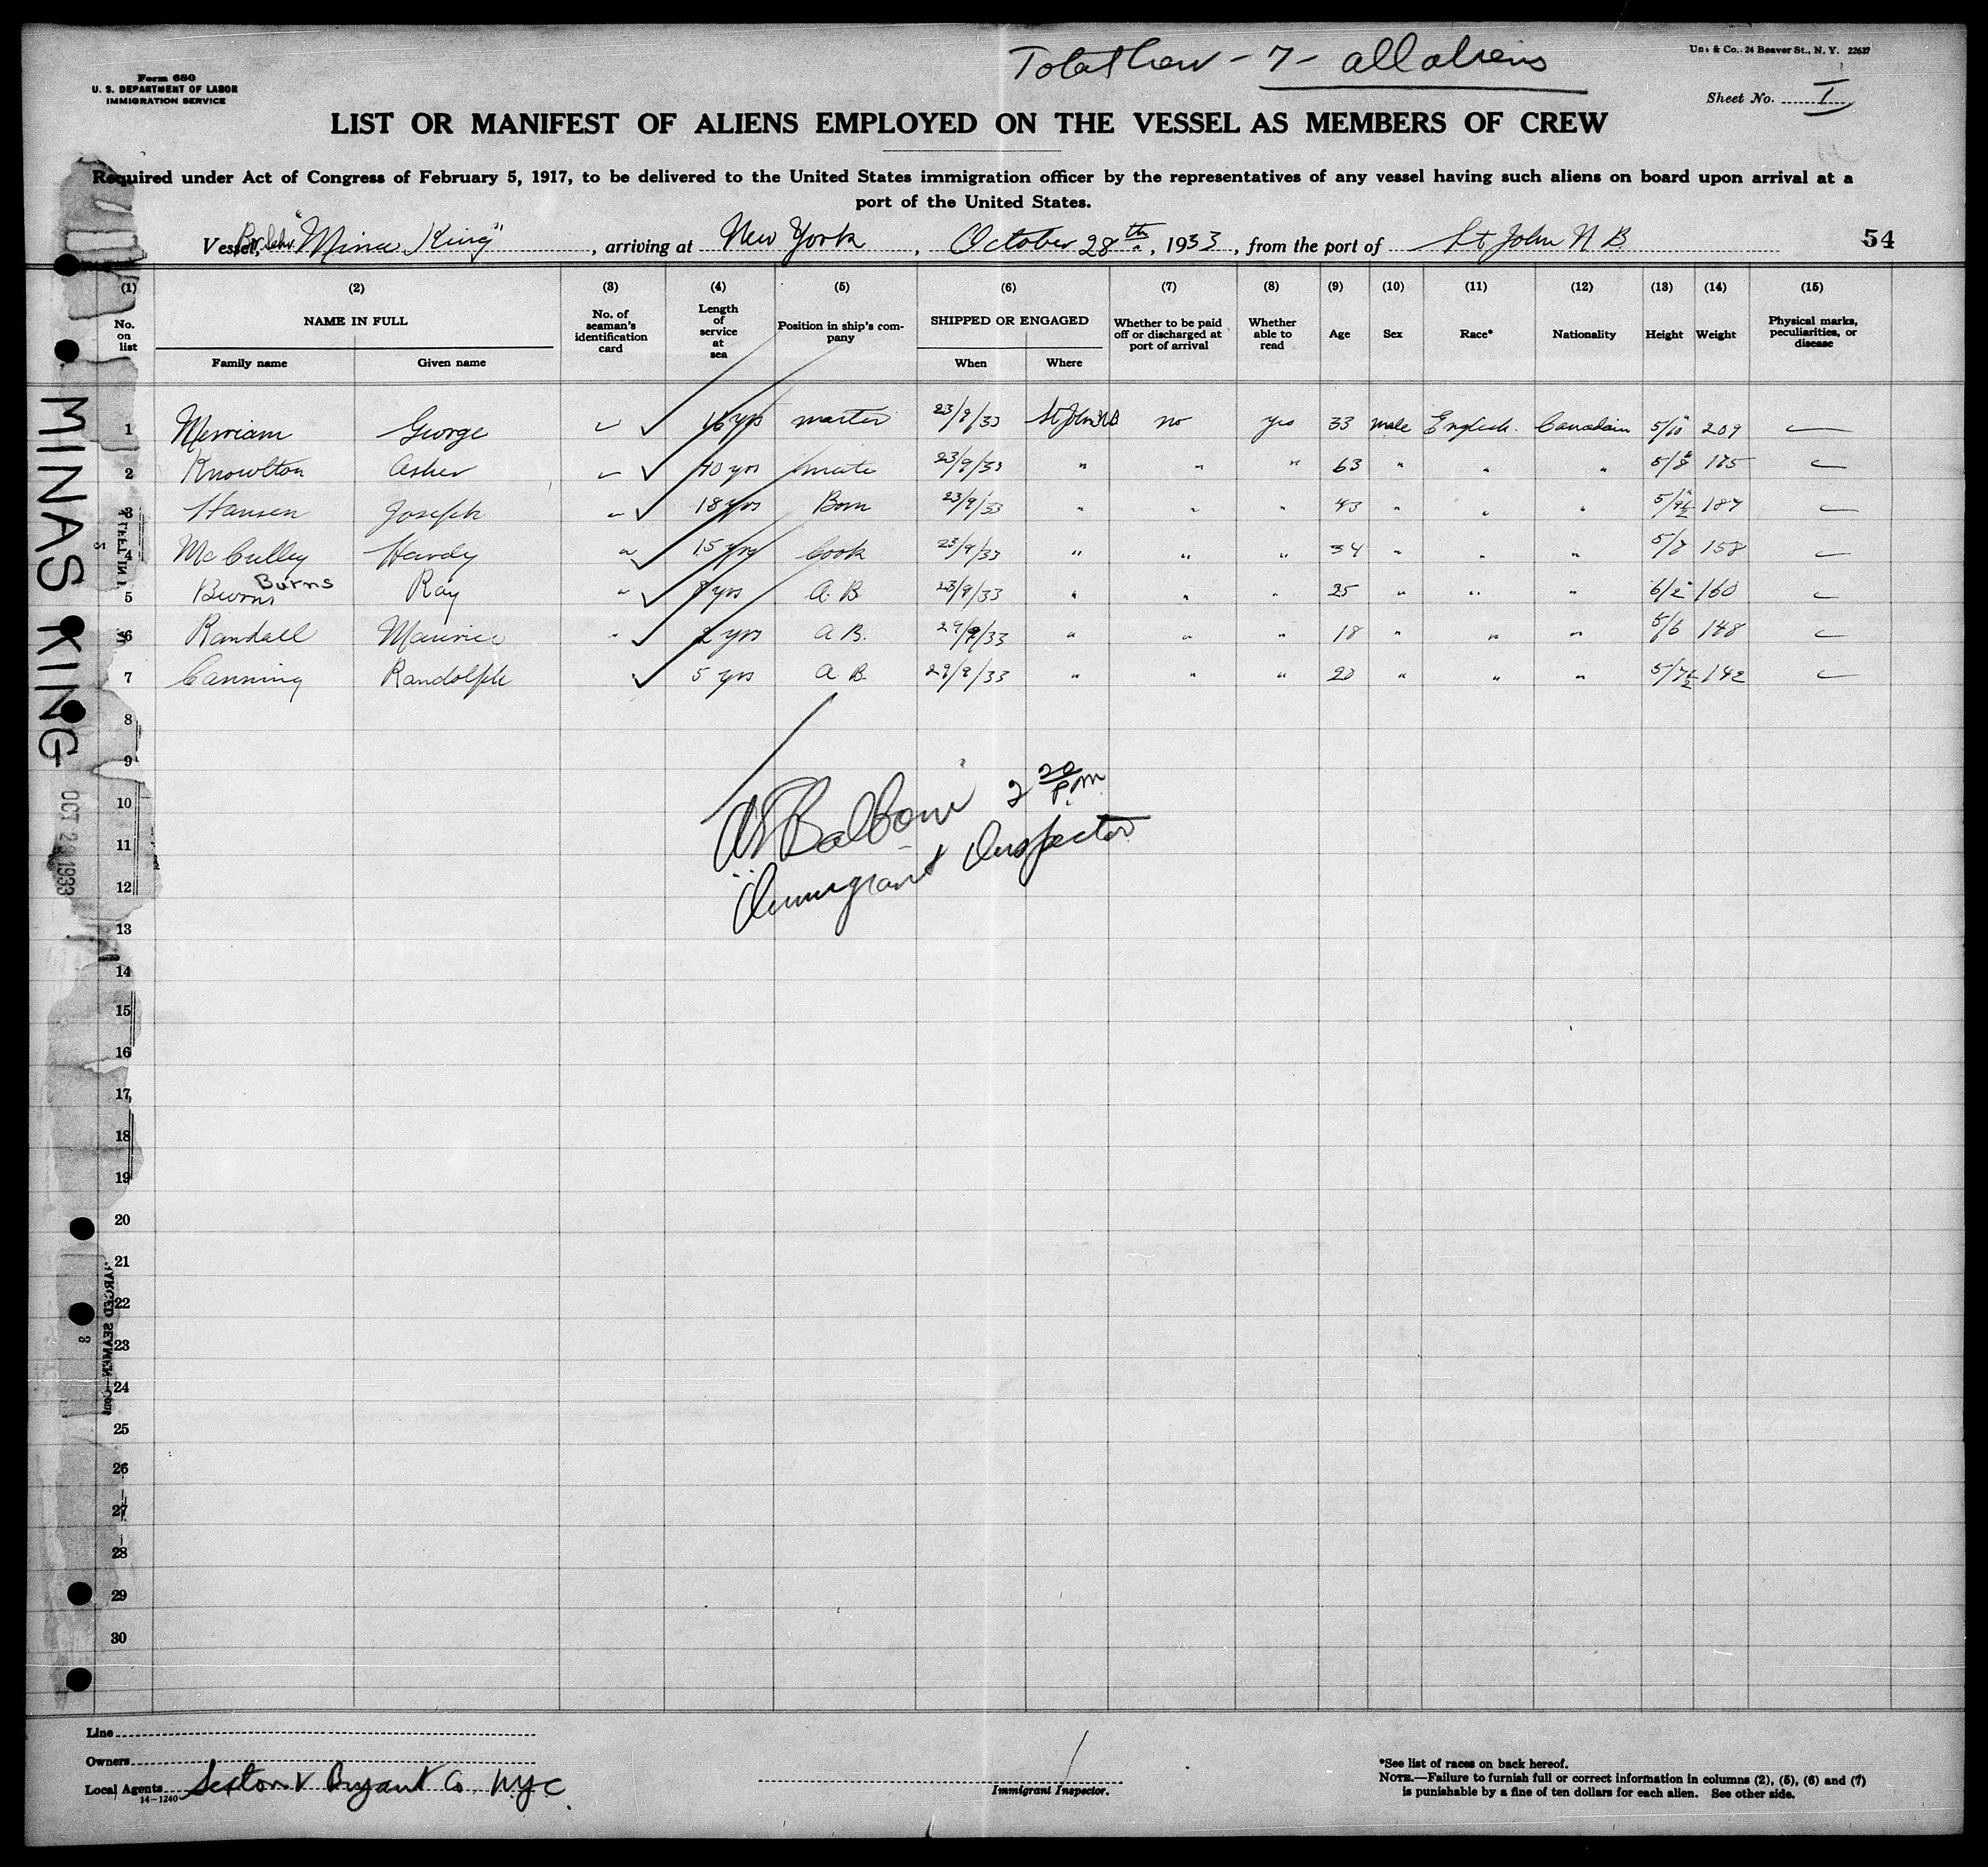 Total Crew - 7 - all aliens
Form 680
U. S. DEPARTMENT OF LABOR
IMMIGRATION SERVICE
Co., 24 Beaver St., N. Y. 22627
Sheet No. I
LIST OR MANIFEST OF ALIENS EMPLOYED ON THE VESSEL AS MEMBERS OF CREW
Required under Act of Congress of February 5, 1917, to be delivered to the United States immigration officer by the representatives of any vessel having such aliens on board upon arrival at a
port of the United States.
Vessel, Br. Schr. "Minas King", arriving at New York, October 28th, 1933, from the port of St John N B
54
(1) (2) (3) (4) (5) (6) (7) (8) (9) (10) (11) (12) (13) (14) (15)
No. on list NAME IN FULL No. of seaman's identification card Length of service at sea Position in ship's company SHIPPED OR ENGAGED Whether to be paid off or discharged at port of arrival Whether able to read Age Sex Race* Nationality Height Weight Physical marks, peculiarities, or disease
Family name Given name When Where
1 Merriam George 16 yrs master 23/9/33 St John NB no yes 33 male English Canadain 5/10 209
2 Knowlton Asher 40 yrs mate 23/9/33 " " " 63 " " " 5/8 175
3 Hansen Joseph 18 yrs Bosn 23/9/33 " " " 43 " " " 187
4 McCulley Hardy 15 yrs Cook 23/9/33 " " " 34 " " " 5/8 158
5 Burns Burns Ray yrs A. B. 23/9/33 " " " 25 " " " 6/2 160
6 Randall Maurice 2 yrs A B. 29/9/33 " " " 18 " " " 5/6 148
7 Canning Randolph 5 yrs A B. 29/9/33 " " " 20 " " " 5/7½ 142
8
9
10
11
12
13
14
15
16
17
18
19
20
21
22
23
24
25
26
27
28
29
30
Balboni 2 20 P.M.
Immigrant Inspector
MINAS KING
OCT 28 1933
Line
Owners
Local Agents Sexton & Bryant Co NYC
14-1240
Immigrant Inspector.
*See list of races on back hereof.
NOTE.—Failure to furnish full or correct information in columns (2), (5), (6) and (7)
is punishable by a fine of ten dollars for each alien. See other side.